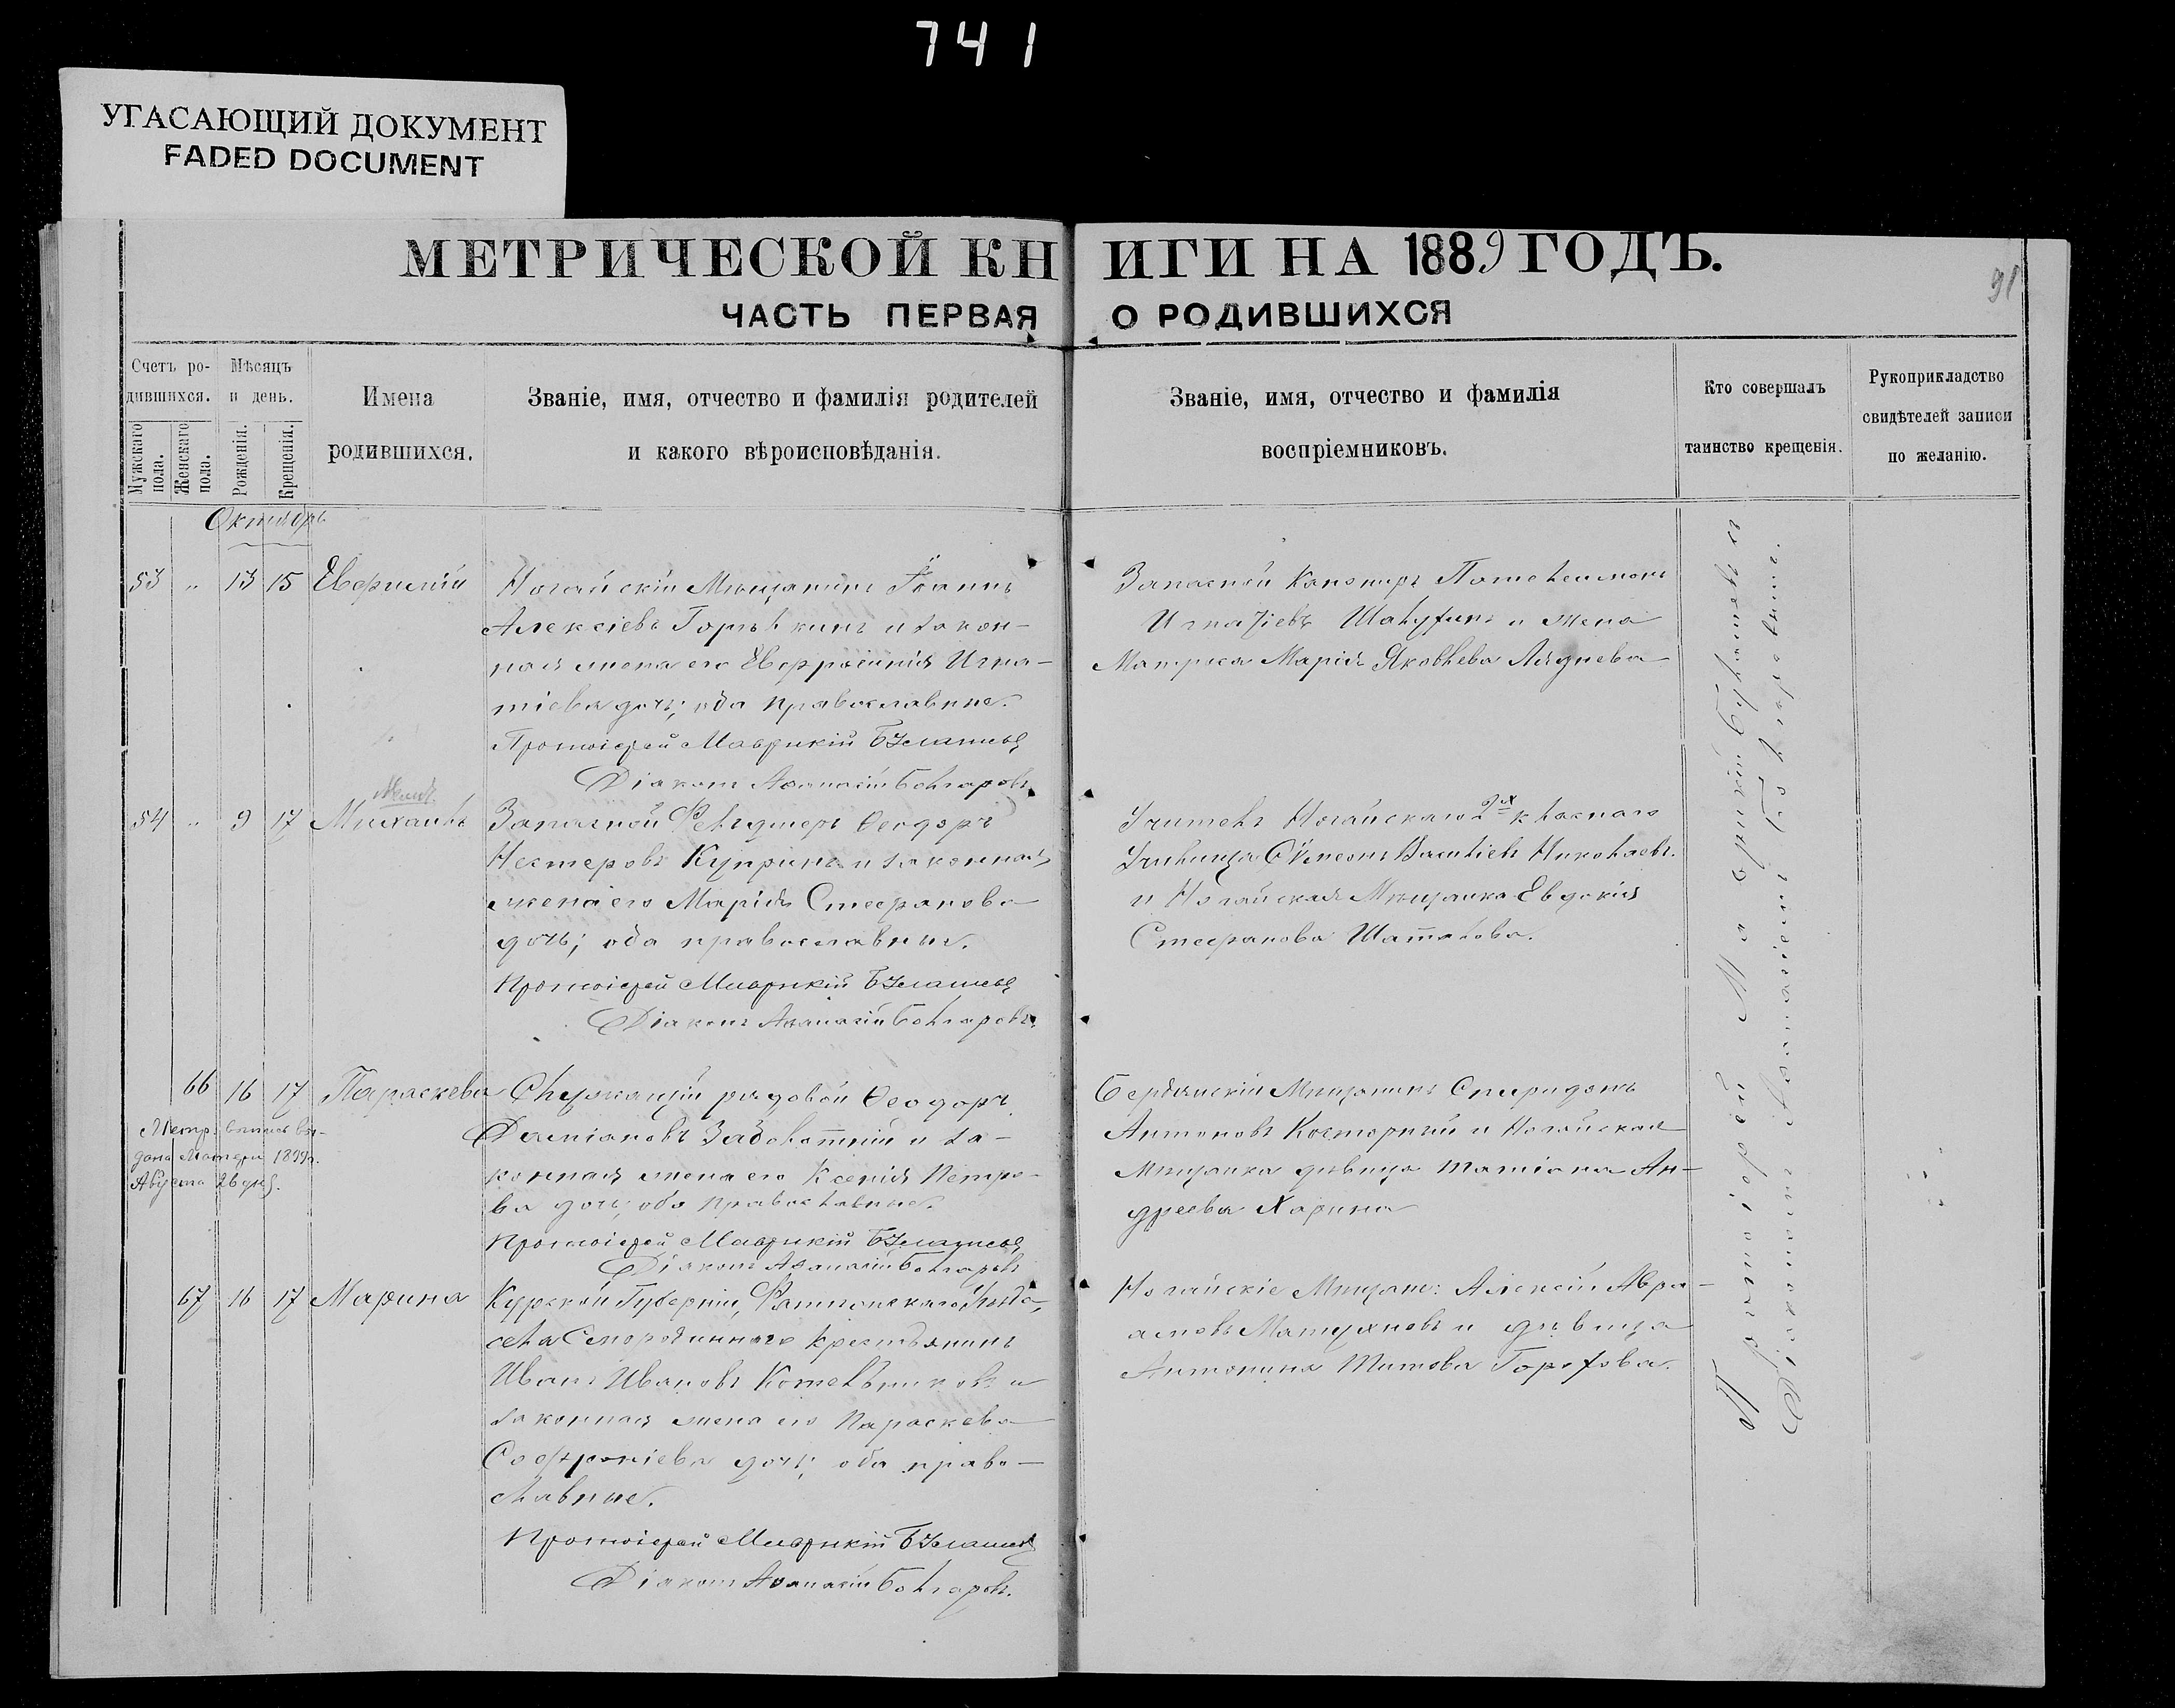 741
УГАСАЮЩИЙ ДОКУМЕНТ
FADED DOCUMENT
МЕТРИЧЕСКОЙ КНИГИ НА 1889 ГОДЪ.
91
ЧАСТЬ ПЕРВАЯ О РОДИВШИХСЯ
Счетъ родившихся.
Мужскаго пола.
Женскаго пола.
Мѣсяцъ и день.
Рожденія.
Крещенія.
Имена
родившихся.
Званіе, имя, отчество и фамилія родителей
и какого вѣроисповѣданія.
Званіе, имя, отчество и фамилія
воспріемниковъ.
Кто совершалъ
таинство крещенія.
Рукоприкладство
свидѣтелей записи
по желанію.
Октябрь
53 " 13 15
Ногайскій Мѣщанинъ Іоаннъ
Алексіевъ Горѣлкинъ и закон-
ная жена его Евфросинія Игна-
тіева дочь; оба православные.
Протоіерей Маврикій
Діаконъ Афанасій Болгаровъ.
Запасной Канониръ Пантелеимонъ
Игнатіевъ и жена
Матроса Марія Яковлева
54 " 9 17 Михаилъ
Запасной Фельдшеръ Ѳеодоръ
Нестеровъ Купринъ и законная
жена его Марія Стефанова
дочь; оба православные.
Протоіерей Маврикій
Діаконъ Афанасій Болгаровъ.
Учитель Ногайскаго 2х класнаго
Училища Сѵмеонъ Василіевъ Николаевъ.
и Ногайская Мѣщанка Евдокія
Стефанова Шаталова.
66 16 17 Параскева
Метр. выпись вы-
дана Матери 1899г.
Августа 26 дня.
Служащій рядовой Ѳеодоръ
Даміановъ Заболотній и за-
конная жена его Ксенія Петро-
ва дочь; оба православные.
Протоіерей Маврикій
Діаконъ Афанасій Болгаровъ
Бердянскій Мѣщанинъ Спиридонъ
Антоновъ Косторный и Ногайская
Мѣщанка дѣвица Татіана Ан-
дреева Харина
67 16 17 Марина
Курской Губерніи, уѣзда,
села Смородиннаго крестьянинъ
Иванъ Ивановъ Котельниковъ и
законная жена его Параскева
Софроніева дочь; оба право-
славные.
Протоіерей Маврикій
Діаконъ Афанасій Болгаровъ.
Ногайскіе Мѣщане: Алексій Авра-
амовъ Матухновъ и дѣвица
Антонина Титова
Протоіерей Маврикій
Діаконъ Афанасій Болгаровъ